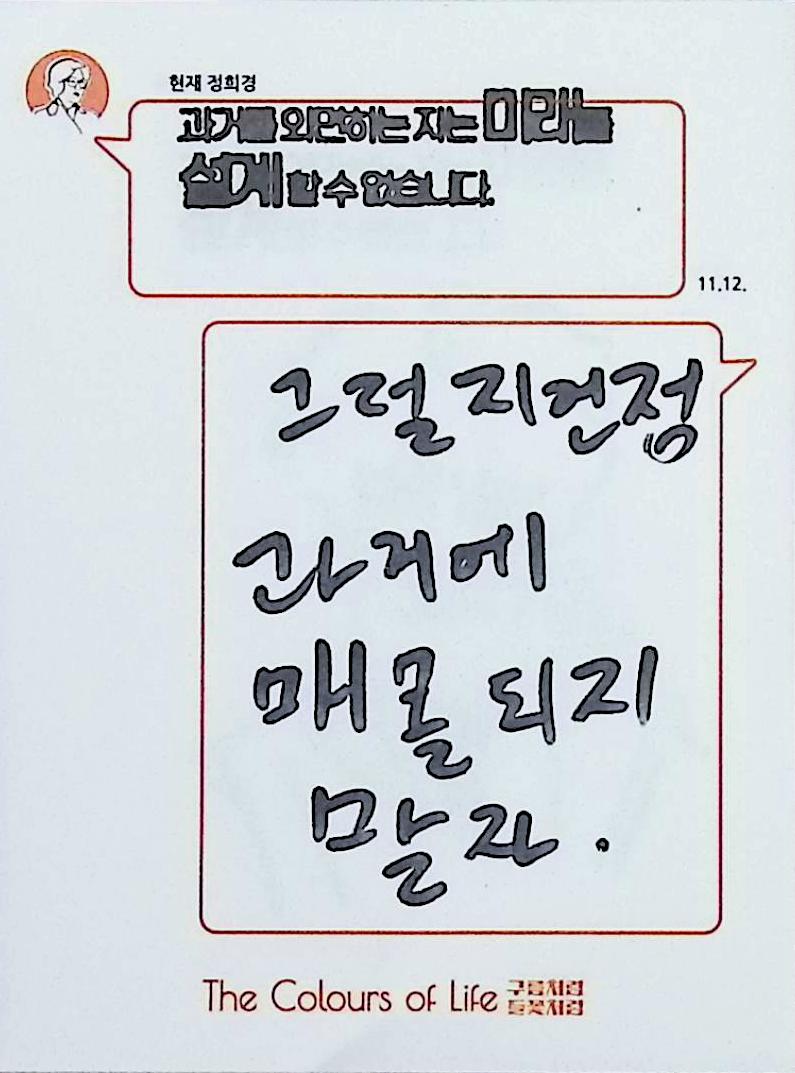 현재 정희경
과거를 외면하는 자는 미래를
설계 할 수 없습니다.
11.12.
그럴지언정
과거에
매몰되지
말자.
The Colours of Life 구름처럼
들꽃처럼